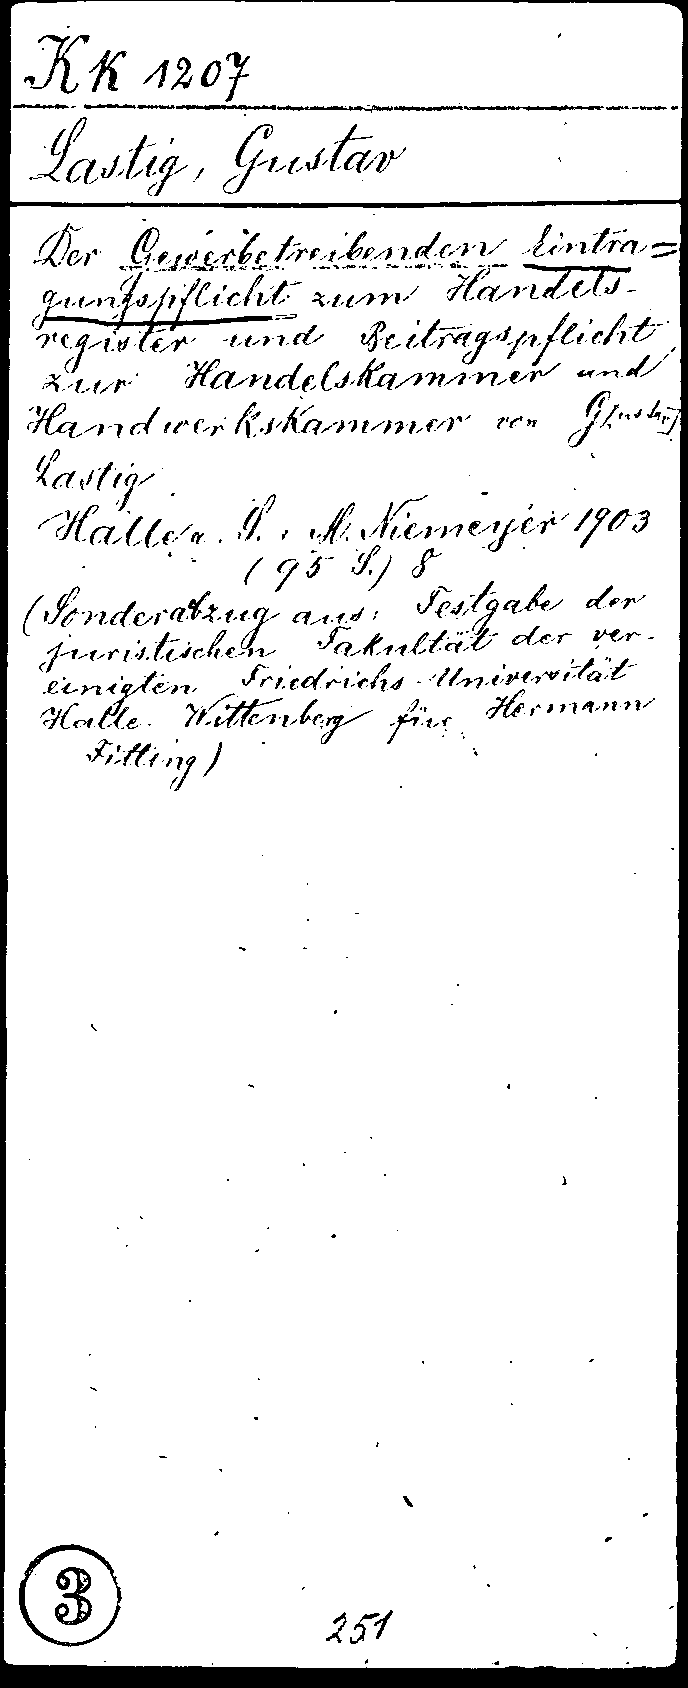 Kk 1207
Lastig, Gustav
Der Gewerbetreibenden Eintra=
gungspflicht zum Handels-
register und Beitragspflicht
zur Handelskammer und
Handwerkskammer von G[ustav]
Lastig
Halle a. S.: M. Niemeyer 1903
(95 S.) 8
(Sonderabzug aus: Festgabe der
juristischen Fakultät der ver-
einigten Friedrichs-Universität
Halle-Wittenberg für Hermann
Fitting)
3
251